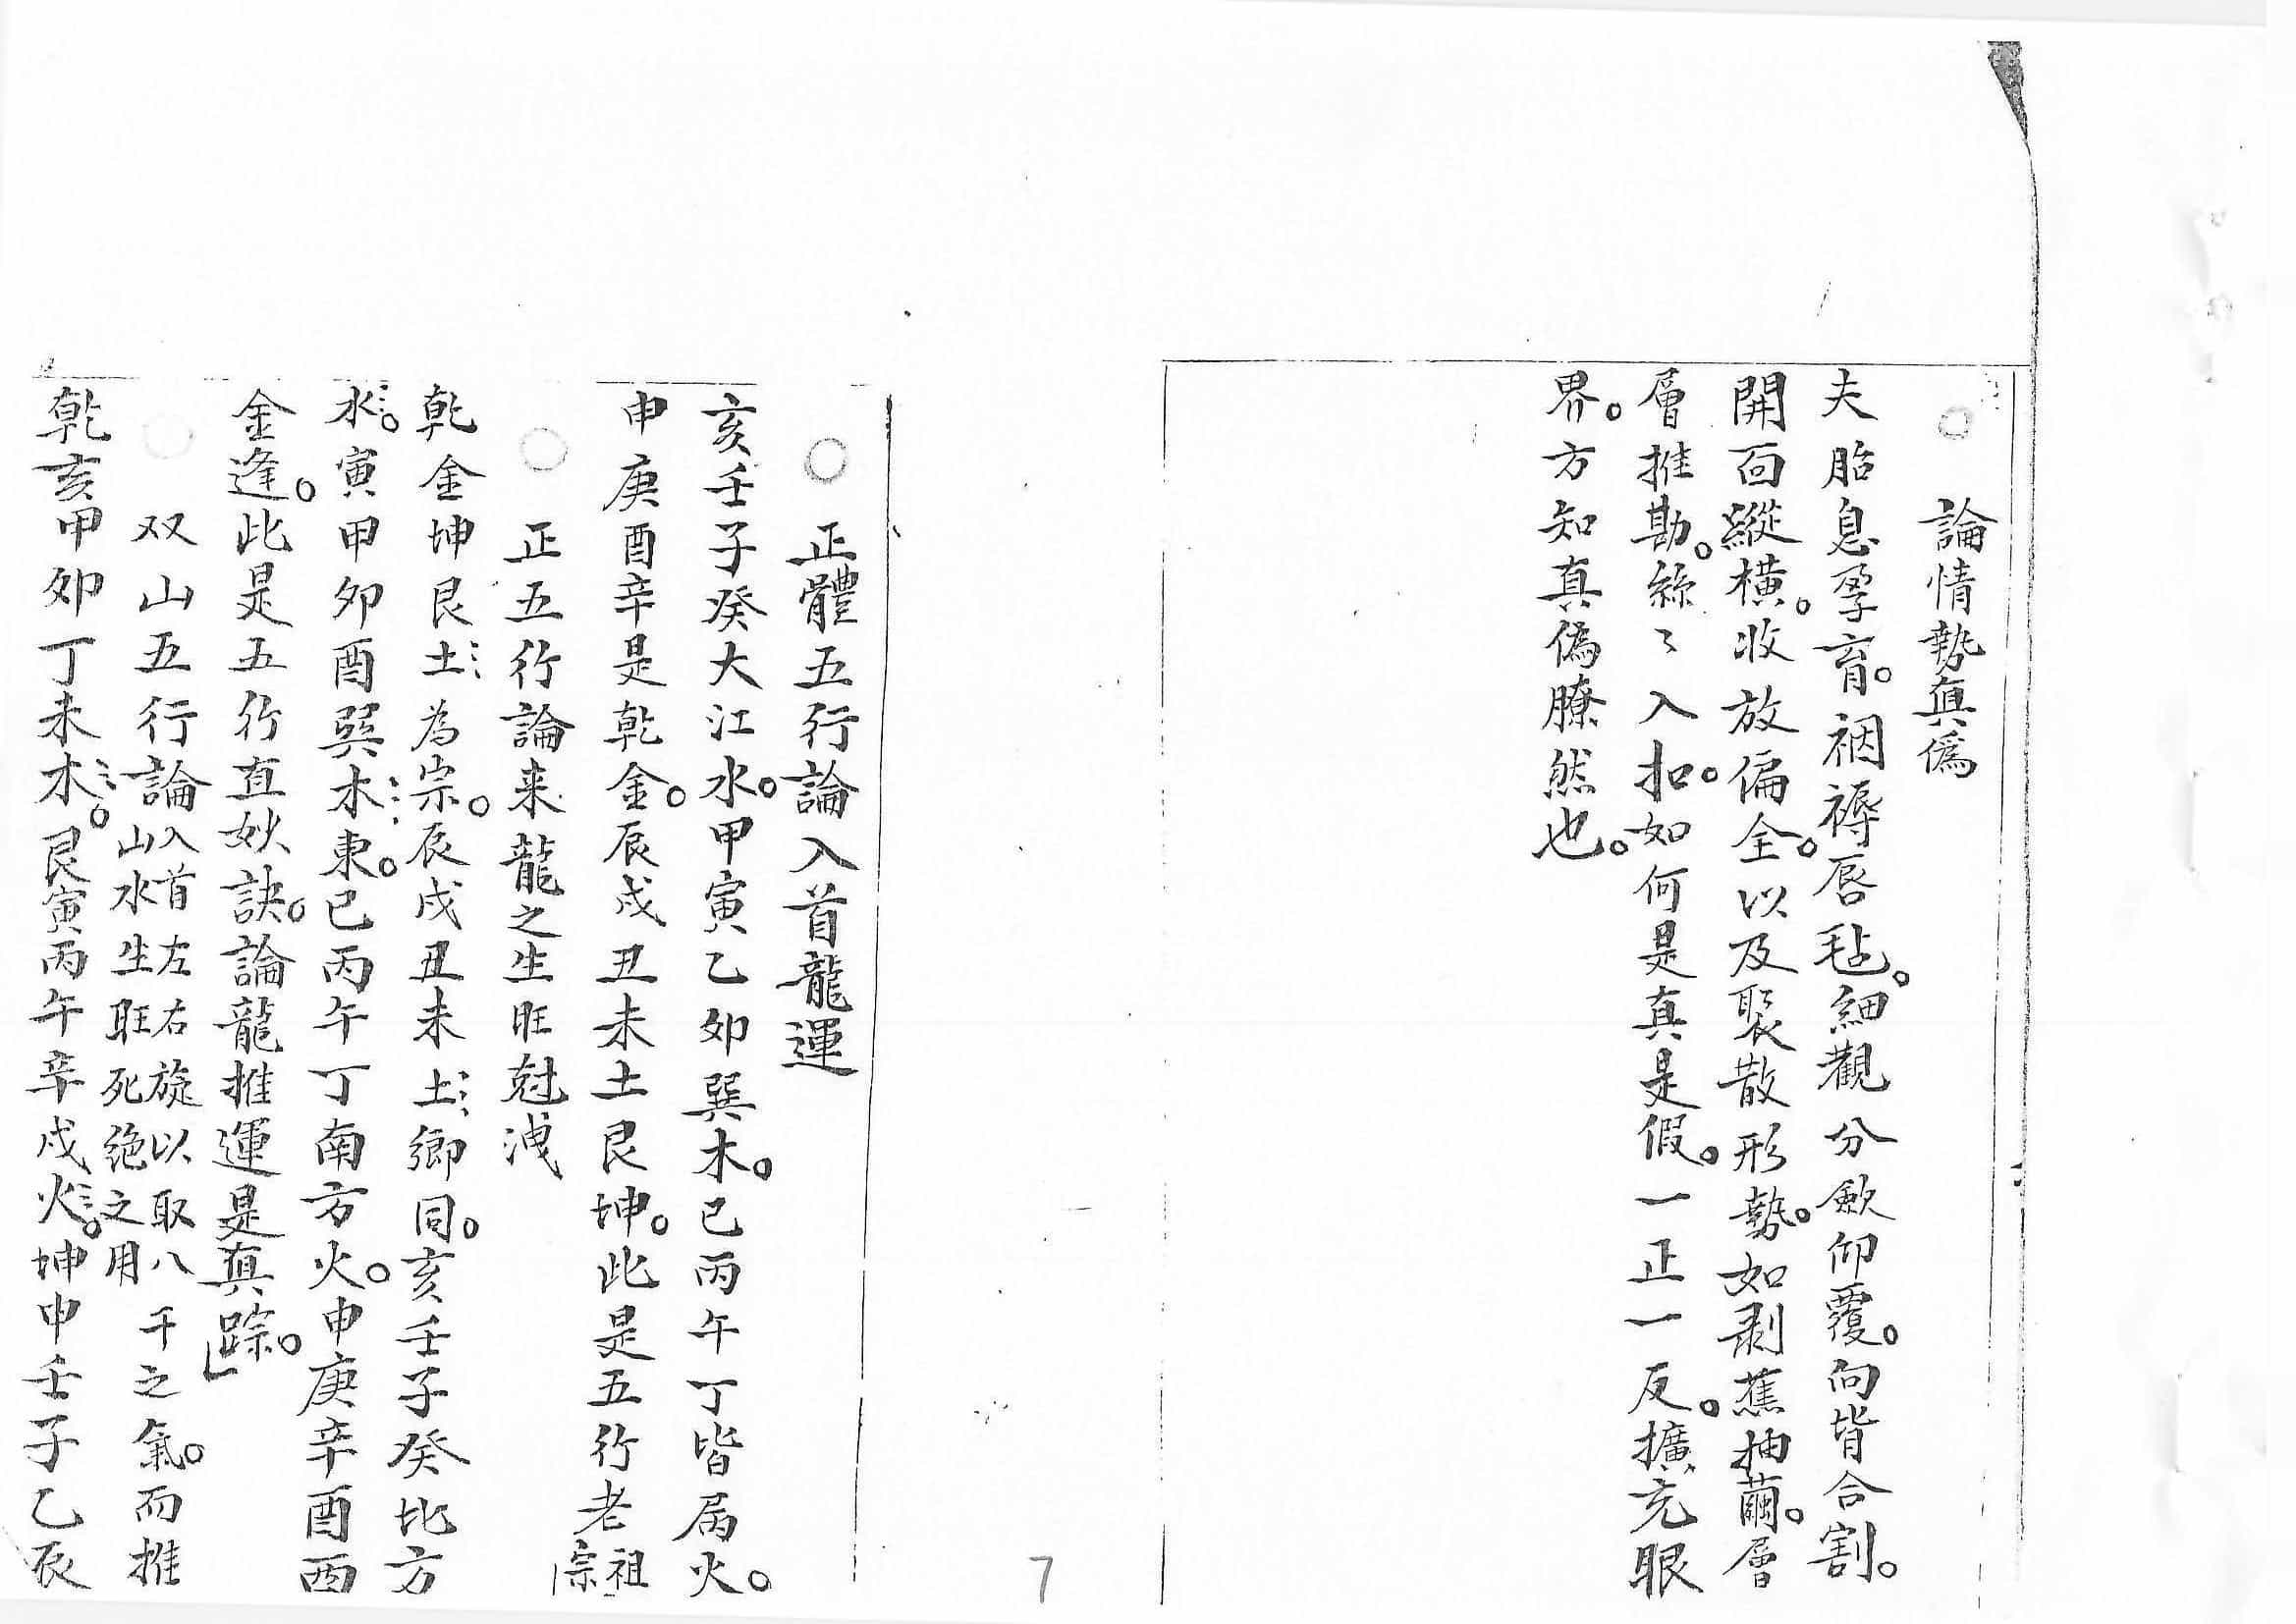 ○　論情勢真偽
夫胎息孕育。裀褥唇毡。細觀分歛仰覆。向背合割。
開面縱橫。收放偏全。以及聚散形勢。如剥蕉抽繭。層
層推勘。絲〻入扣。如何是真是假。一正一反。擴充眼
界。方知真偽瞭然也。
○　正體五行論入首龍運
亥壬子癸大江水。甲寅乙卯巽木。巳丙午丁皆屬火。
申庚酉辛是乾金。辰戌丑未土艮坤。此是五行老祖宗
○　正五行論来龍之生旺尅洩
乾金坤艮土為宗。辰戌丑未土鄉同。亥壬子癸北方
水。寅甲卯酉巽木東。巳丙午丁南方火。申庚辛酉西
金逢。此是五行直妙訣。論龍推運是真踪。
○　双山五行論入首左右旋以取八干之氣。而推
山水生旺死絶之用
乾亥甲卯丁未木。艮寅丙午辛戌火。坤申壬子乙辰
7